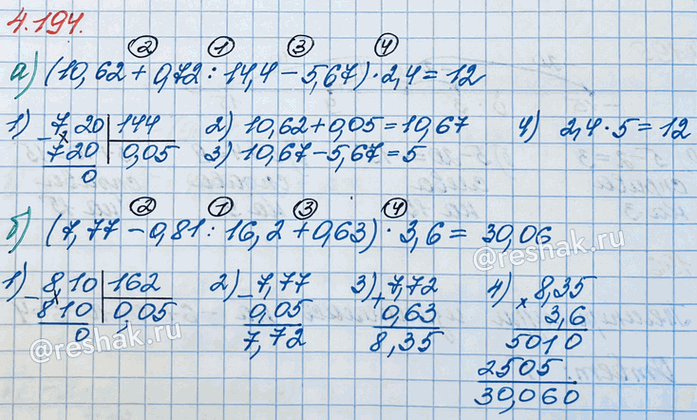 4.194.
② ① ③ ④
а) (10,62 + 0,72 : 14,4 − 5,67) · 2,4 = 12
1) 7,20 | 144 2) 10,62 + 0,05 = 10,67 4) 2,4 · 5 = 12
− 720 | 0,05 3) 10,67 − 5,67 = 5
0
② ① ③ ④
б) (7,77 − 0,81 : 16,2 + 0,63) · 3,6 = 30,06
@reshak.ru
1) 8,10 | 162 2) − 7,77 3) + 7,72 4) × 8,35
− 810 | 0,05 0,05 0,63 3,6
0 7,72 8,35 5010
@reshak.ru
2505
30,060